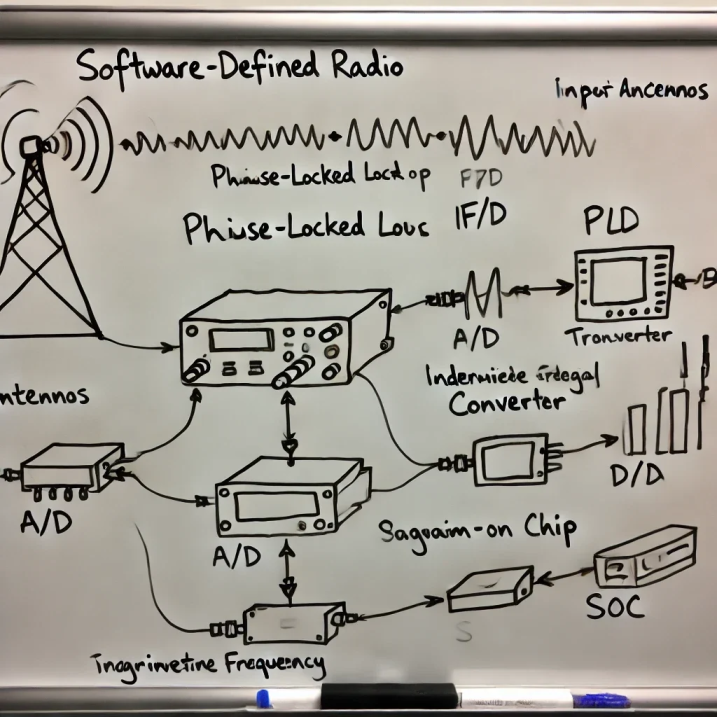 Software-Defined Radio
Input Ancennos
Phiuse-Locked Lockop
F7D
Phiuse-Locked Lous
IF/D
PLD
B
A/D
Tronverter
ntennos
Indermiede
Converter
A/D
D/D
A/D
Sagoaim-on Chip
S
SOC
Frequency